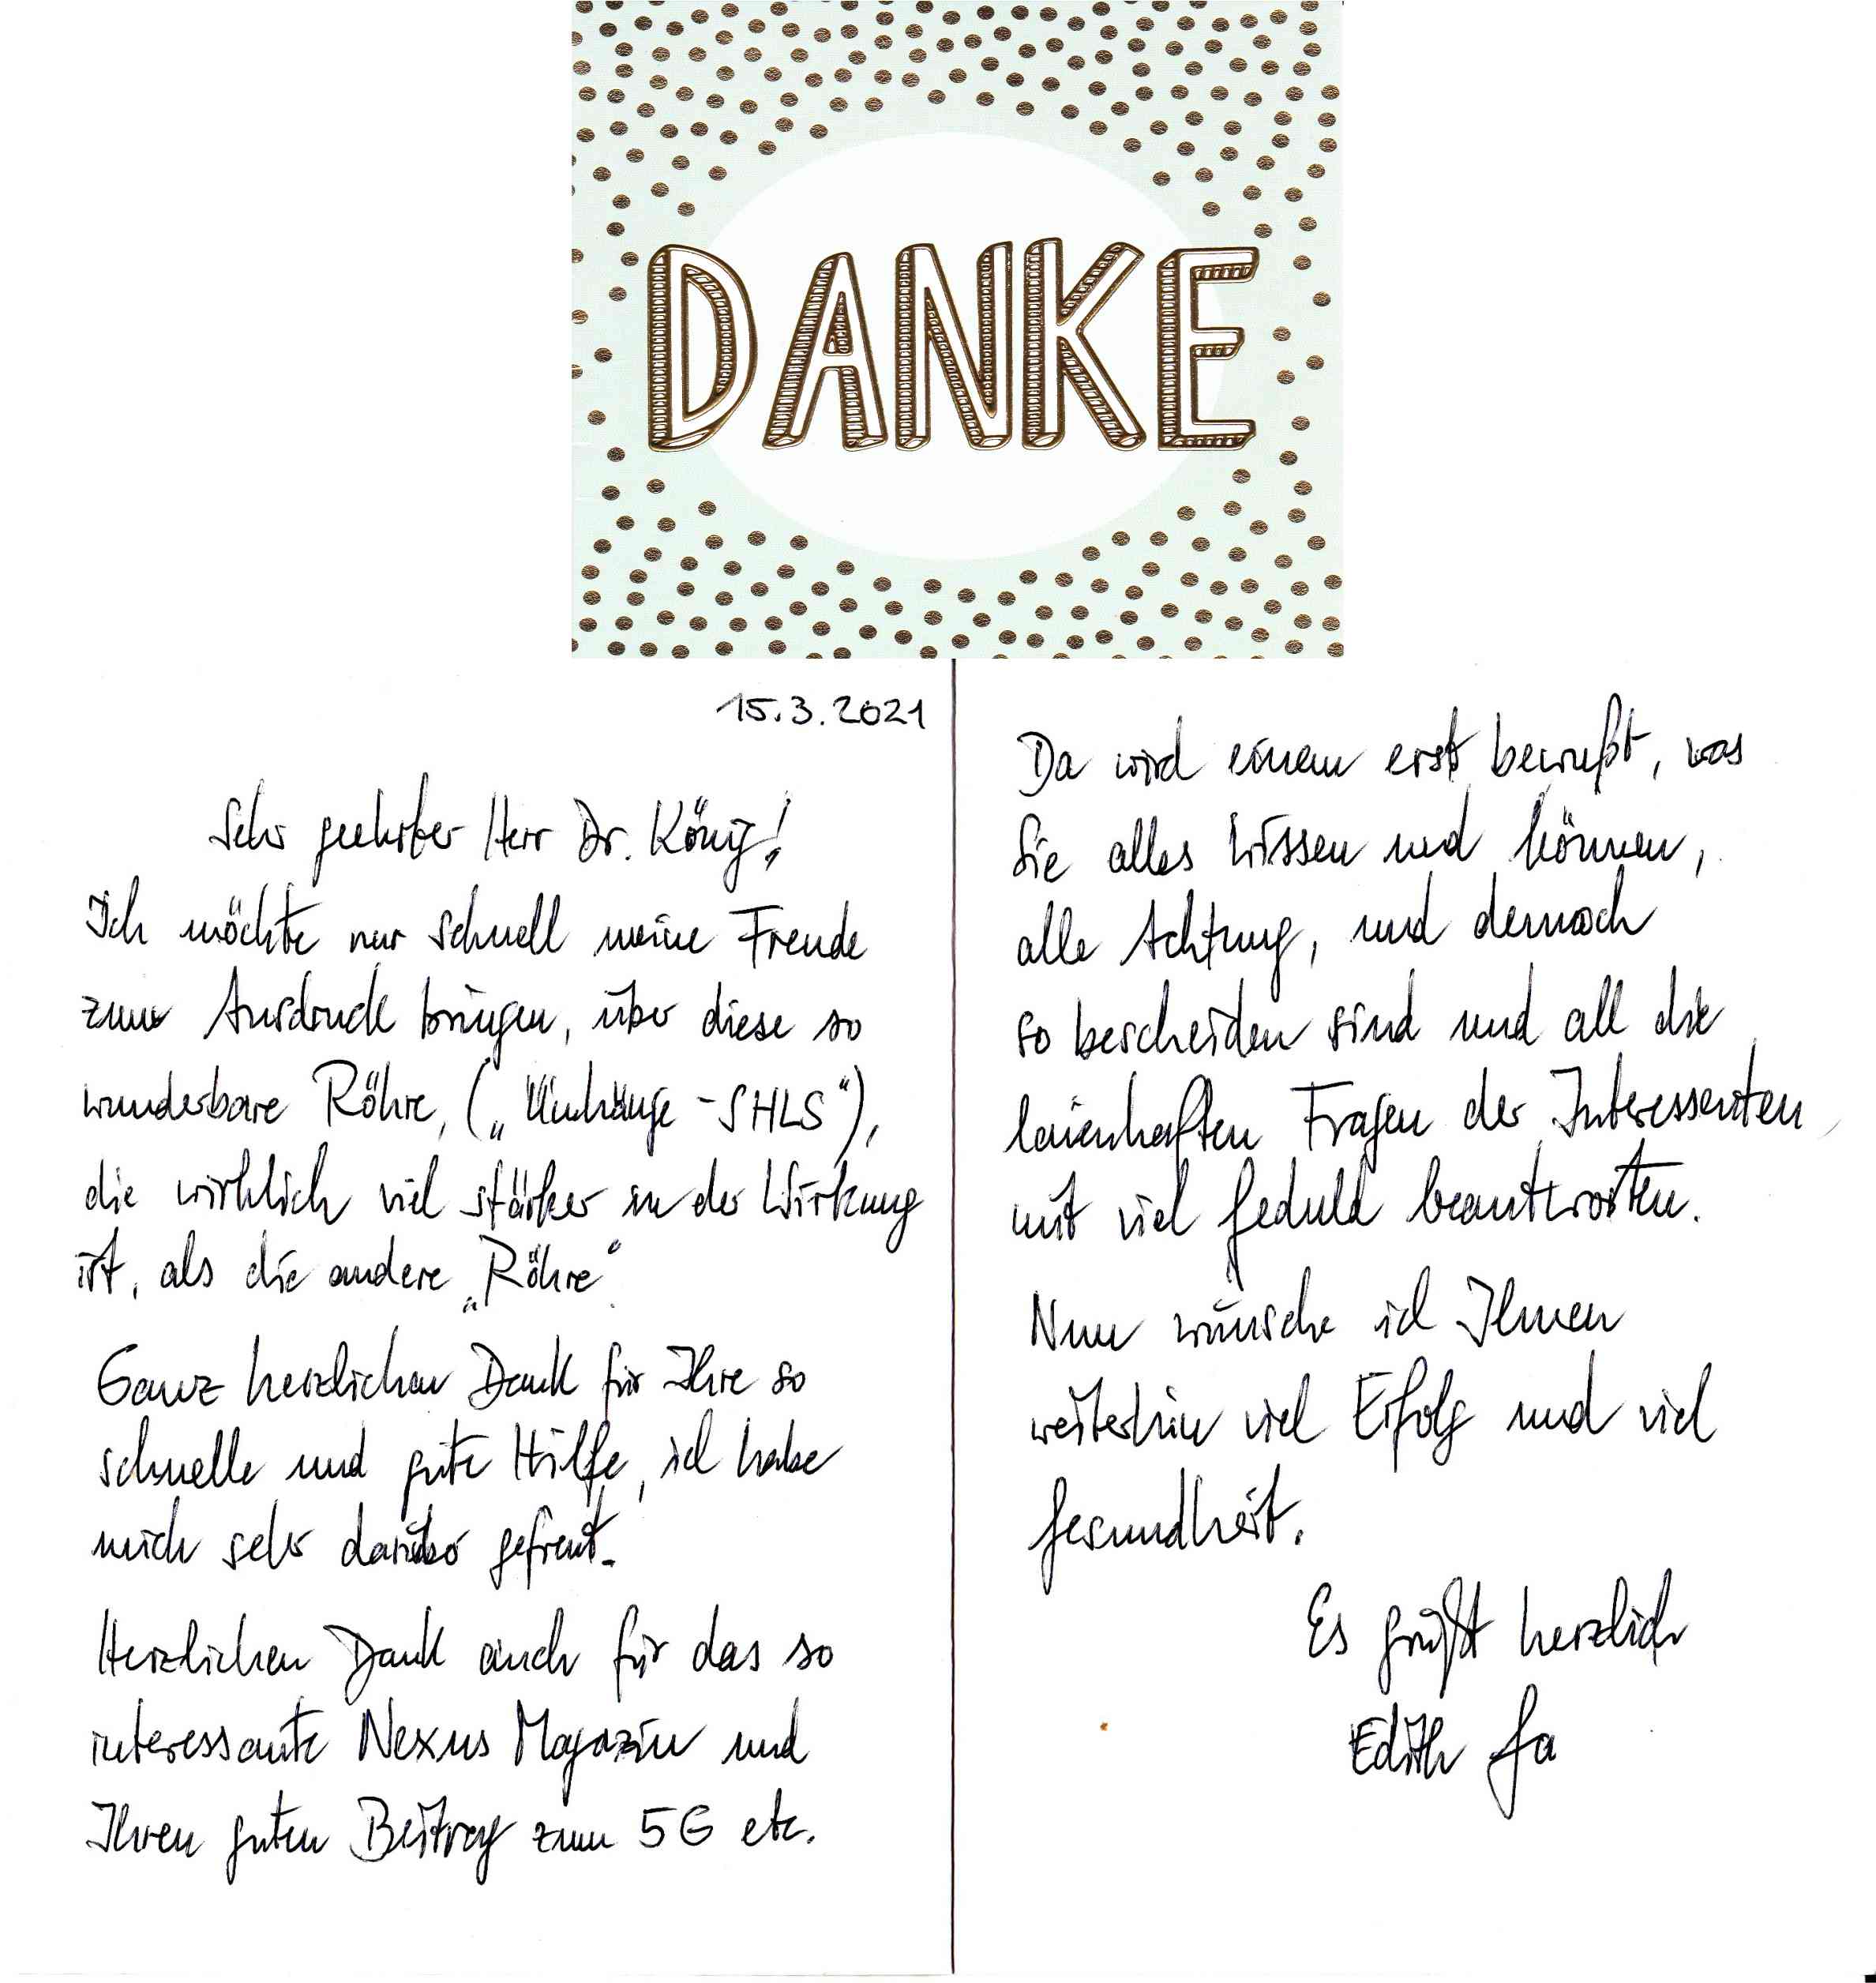 DANKE
15.3.2021
Sehr geehrter Herr Dr. König!
Ich möchte nur schnell meine Freude
zum Ausdruck bringen, über diese so
wunderbare Röhre, („Umhänge-SHLS“),
die wirklich viel stärker in der Wirkung
ist, als die andere „Röhre“.
Ganz herzlichen Dank für Ihre so
schnelle und gute Hilfe, ich habe
mich sehr darüber gefreut.
Herzlichen Dank auch für das so
interessante Nexus Magazin und
Ihren guten Beitrag zum 5G etc.
Da wird einem erst bewußt, was
Sie alles wissen und können,
alle Achtung, und dennoch
so bescheiden sind und all die
laienhaften Fragen der Interessenten
mit viel Geduld beantworten.
Nun wünsche ich Ihnen
weiterhin viel Erfolg und viel
Gesundheit.
Es grüßt herzlich
Edith Ga